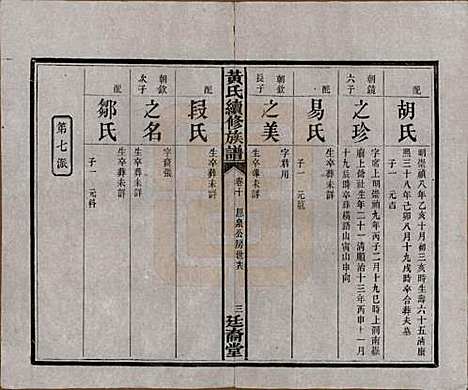 配
胡氏
生明崇禎八年乙亥十月初三亥時生壽六十五清康
熙三十八年己卯八月十九戌時卒合葬夫墓
子一 元吉
朝鏡
六子
之珍
字席上明崇禎九年丙子二月十九巳時
十九辰時卒葬橫語山寅山申向
配
易氏
生卒葬未詳
子一 元
朝欽
長子
之美
字
生卒葬未詳
黃氏續修族譜
卷十
泉公房世系
三
廷裔堂
配
段氏
生卒葬未詳
朝欽
次子
之名
字
生卒葬未詳
配
鄒氏
生卒葬未詳
子一 元科
第七派